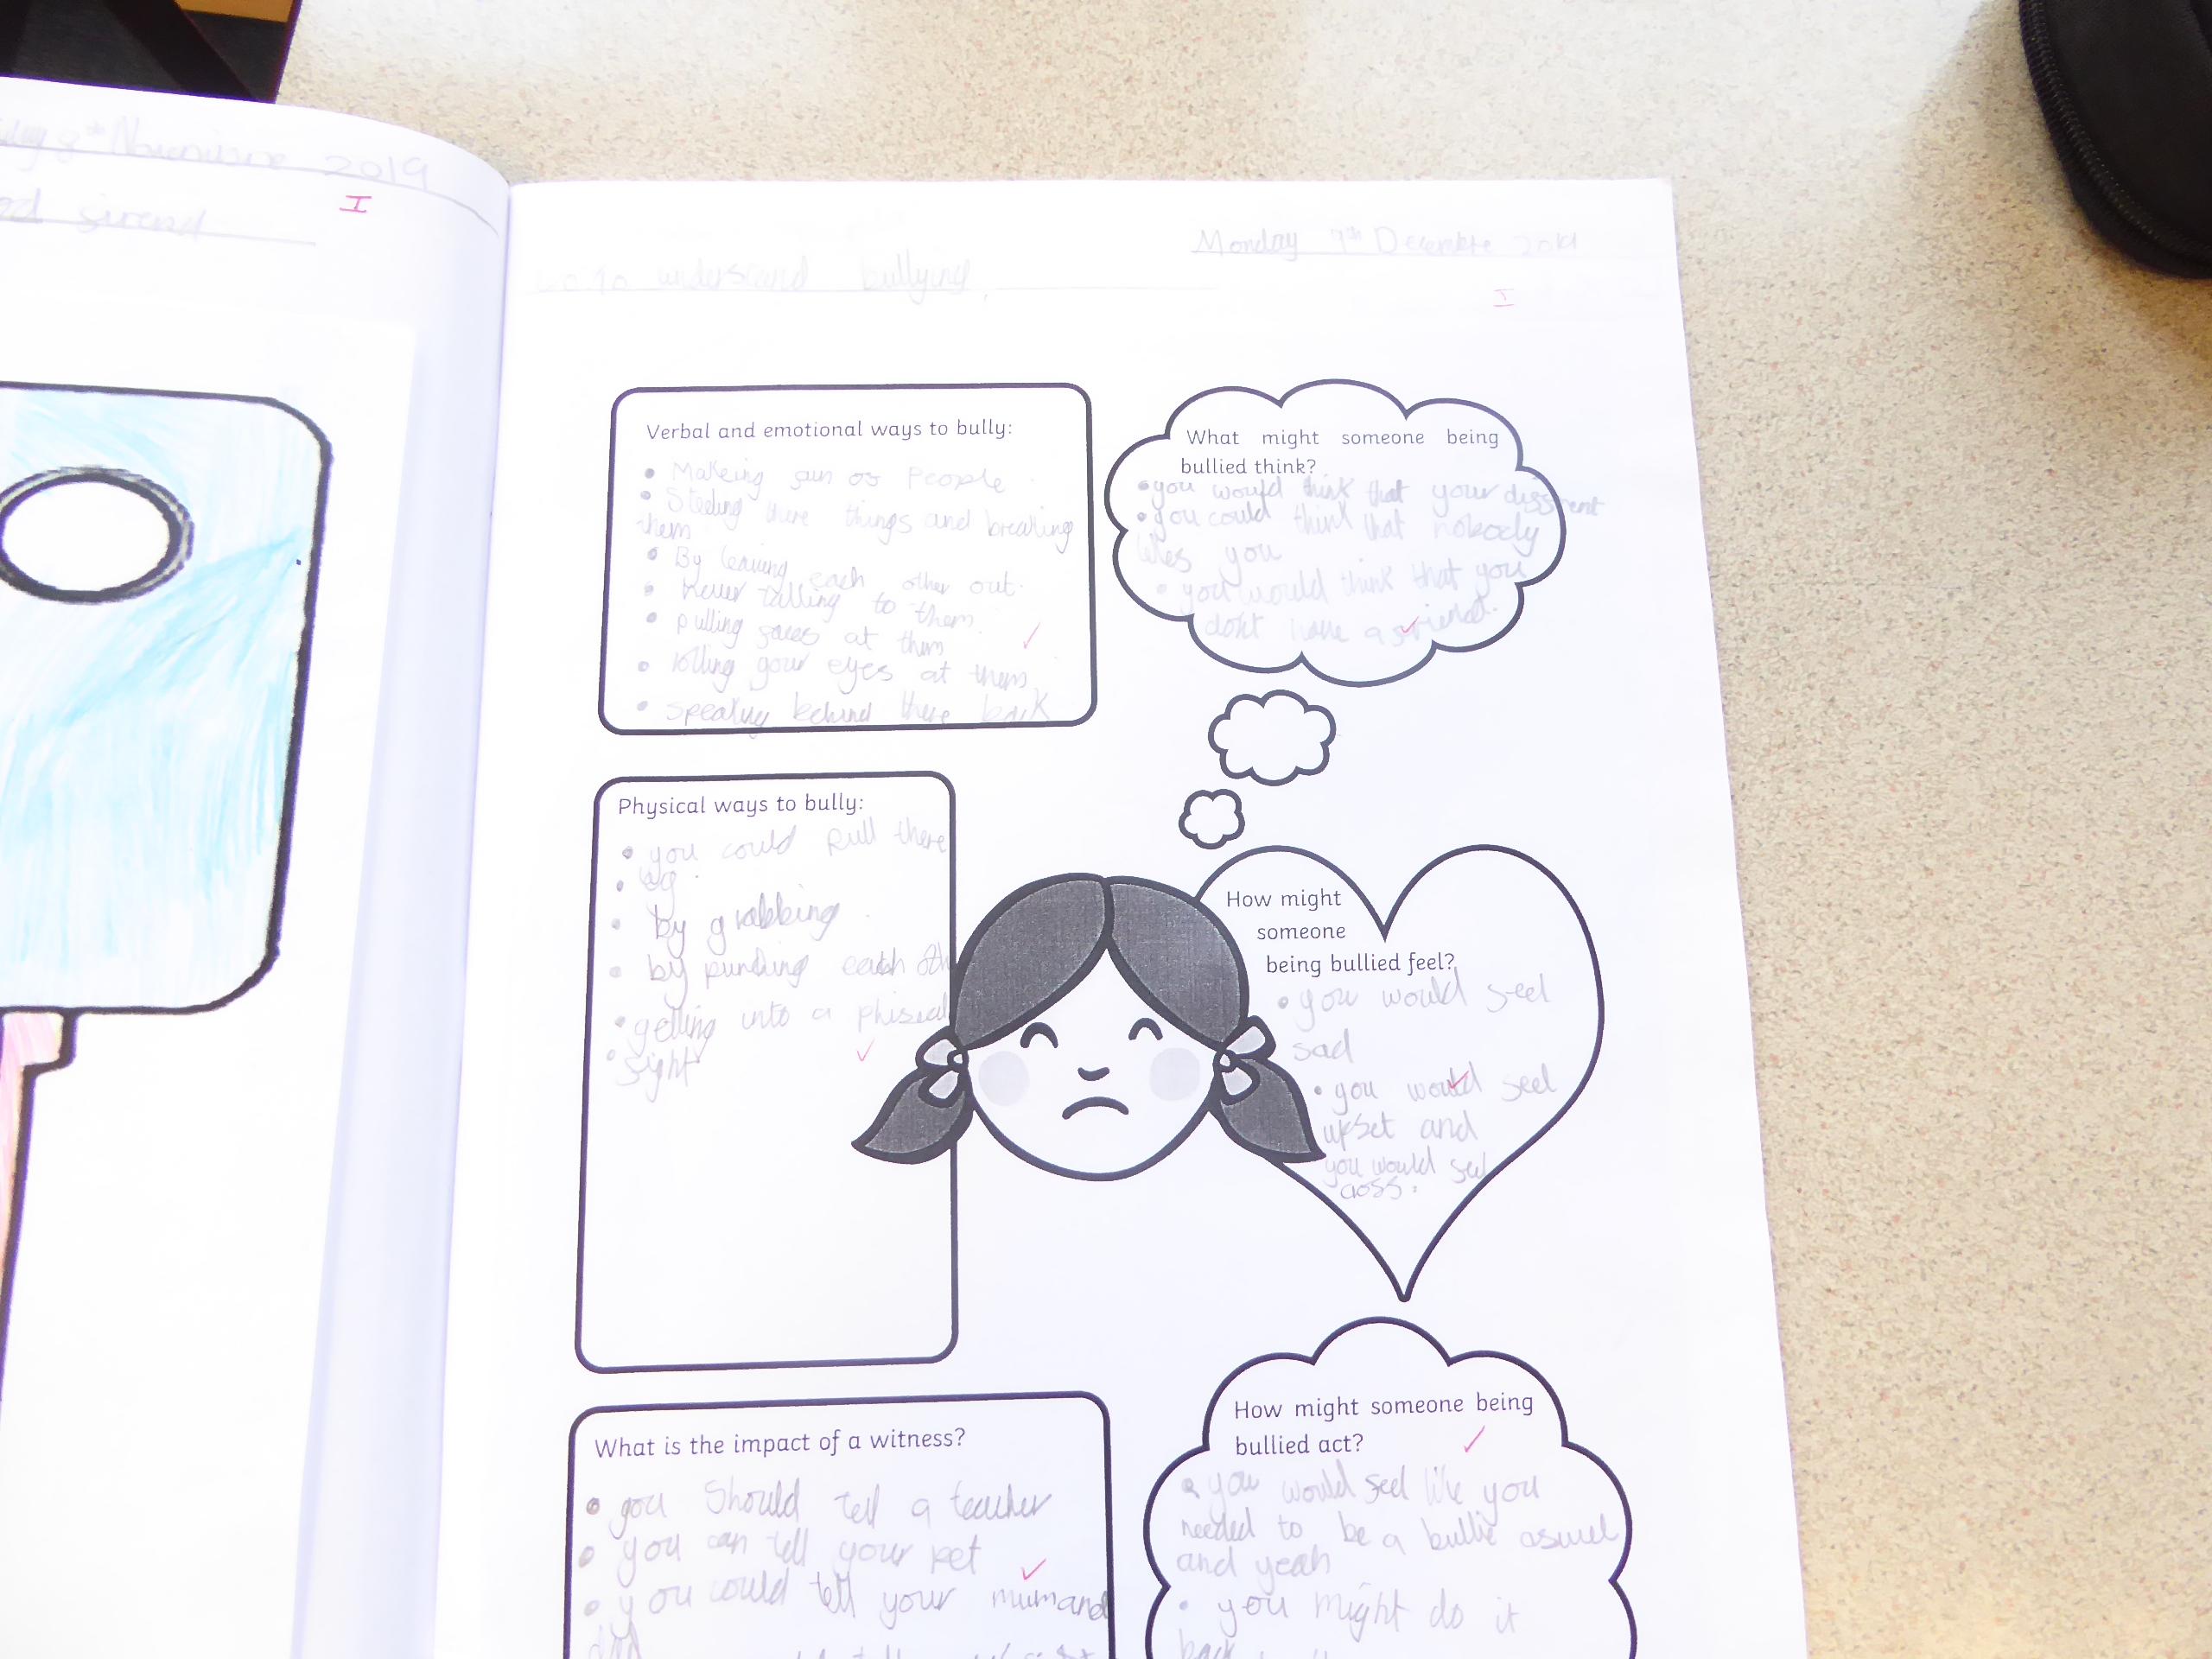 8th Novembre 2019
I
Monday 9th Decembre 2019
to understand bullying
I
Verbal and emotional ways to bully:
• Makeing fun of People
• Steeling there things and breaking
them
• By leaving each other out.
• never talking to them.
• pulling faces at them
• rolling your eyes at them
• speaking behind there back
What might someone being
bullied think?
• you would think that your different
• you could think that nobody
likes you
• you would think that you
dont have a friend.
Physical ways to bully:
• you could pull there
• leg.
• by grabbing
• by punching each oth
• getting into a phisical
• fight
How might
someone
being bullied feel?
• you would feel
sad
• you would feel
upset and
you would feel
cross.
What is the impact of a witness?
• you should tell a teacher
• you can tell your pet
• you could tell your mum and
dad
How might someone being
bullied act?
• you would feel like you
needed to be a bullie aswel
and yeah
• you might do it
back